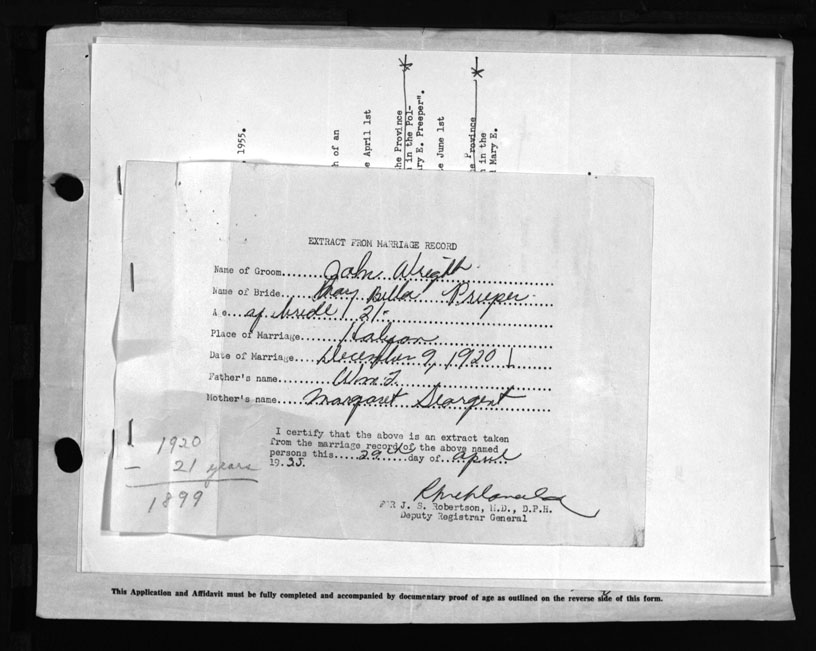 1955.
h of an
e April 1st
he Province
in the Pol-
ry E. Preeper".
e June 1st
he Province
in the
Mary E.
EXTRACT FROM MARRIAGE RECORD
Name of Groom......John Wright
Name of Bride....May Bella Preeper
A e...of bride 21.
Place of Marriage....Halifax
Date of Marriage....December 9, 1920
Father's name........Wm. T.
Mother's name....Margaret Seargent
I certify that the above is an extract taken
from the marriage record of the above named
persons this.....29th...day of..April....
1955.
1920
- 21 years
1899
FOR J. S. Robertson, M.D., D.P.H.
Deputy Registrar General
This Application and Affidavit must be fully completed and accompanied by documentary proof of age as outlined on the reverse side of this form.